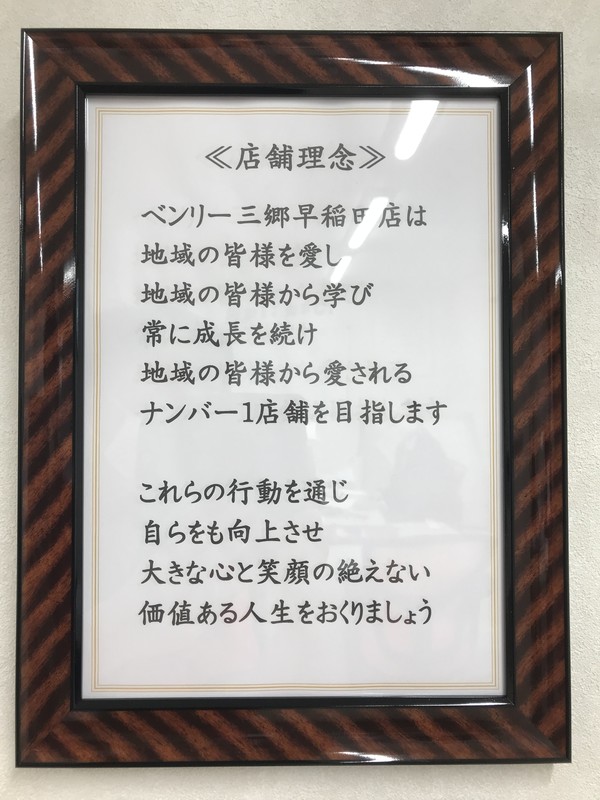 ≪店舗理念≫
ベンリー三郷早稲田店は
地域の皆様を愛し
地域の皆様から学び
常に成長を続け
地域の皆様から愛される
ナンバー1店舗を目指します
これらの行動を通じ
自らをも向上させ
大きな心と笑顔の絶えない
価値ある人生をおくりましょう